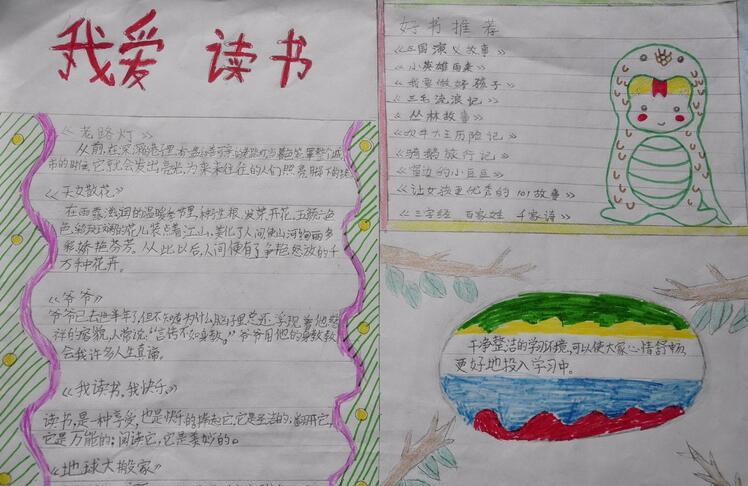 我爱 读书
《老路灯》
从前,在
市的时候,它就会发出亮光,为来来往往的人们照亮脚下的路
《天女散花》
在雨露滋润的温暖季节里,种籽生根、发芽、开花,五颜六色
花儿装点着江山,美化了人间,使山河绚丽多
彩,娇艳芬芳。从此以后,人间便有了争艳怒放的千
万种花卉。
《爷爷》
爷爷已去世半年了,但不知为什么,脑子里总还浮现着他慈
祥的容貌,人常说:“言传不如身教。”爷爷用他的身教教
会我许多人生真谛。
《我读书,我快乐》
读书,是一种享受,也是快乐的;捧起它,它是圣洁的;翻开它,
它是万能的;阅读它,它是美妙的。
《地球大搬家》
好书推荐
《三国演义故事》
《小英雄雨来》
《我要做好孩子》
《三毛流浪记》
《丛林故事》
《吹牛大王历险记》
《骑鹅旅行记》
《窗边的小豆豆》
《让女孩更优秀的101故事》
《三字经 百家姓 千家诗》
干净整洁的学习环境,可以使大家心情舒畅,
更好地投入学习中。